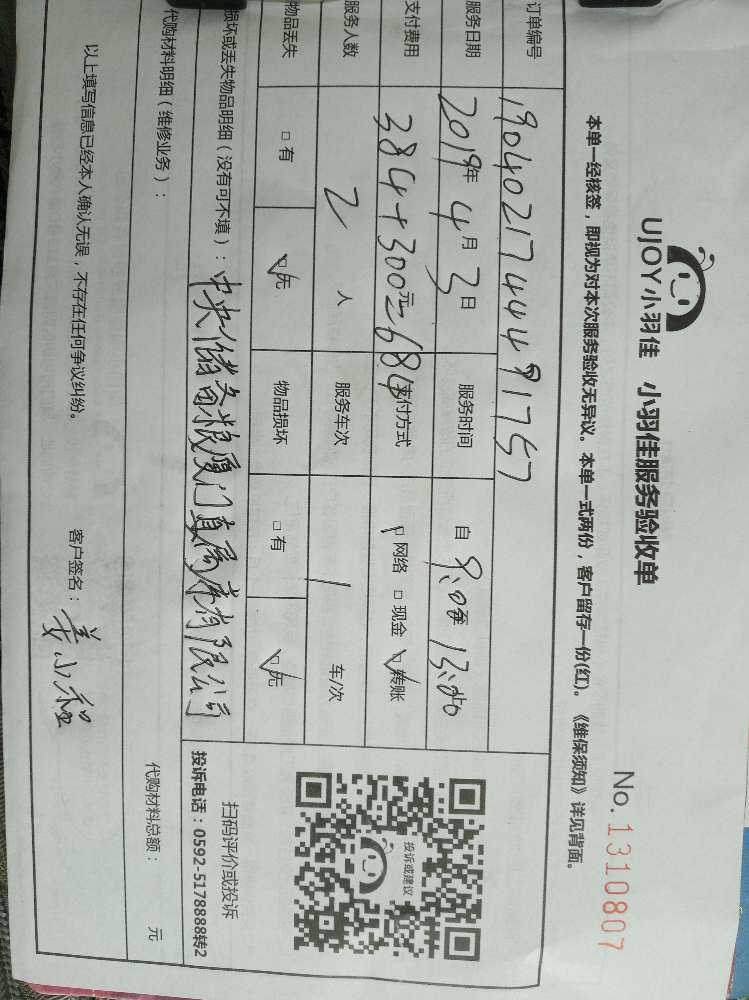 UJOY小羽佳 小羽佳服务验收单
No. 1310807
本单一经核签，即视为对本次服务验收无异议。本单一式两份，客户留存一份(红)。《维保须知》详见背面。
订单编号 19040217444491757
服务日期 2019年 4月 3日 服务时间 自 9:00至 13:00止
支付费用 384+300元=684 支付方式 □ 网络 □ 现金 ☑ 转账
服务人数 2 人 服务车次 1 车/次
物品丢失 □ 有 ☑ 无 物品损坏 □ 有 ☑ 无
损坏或丢失物品明细（没有可不填）：中央储备粮厦门直属库有限公司
代购材料明细（维修业务）：
代购材料总额： 元
以上填写信息已经本人确认无误，不存在任何争议纠纷。 客户签名：
投诉或建议
扫码评价或投诉
投诉电话：0592-5178888转2